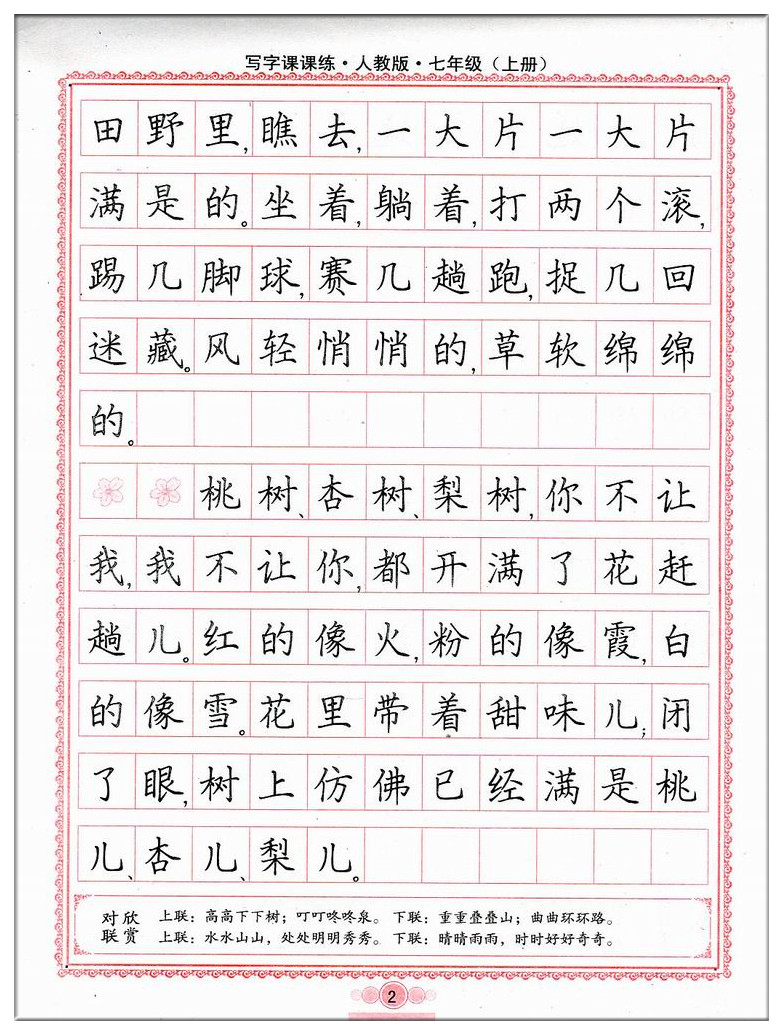 写字课课练·人教版·七年级（上册）
田野里,瞧去,一大片一大片
满是的。坐着,躺着,打两个滚,
踢几脚球,赛几趟跑,捉几回
迷藏。风轻悄悄的,草软绵绵
的。
桃树、杏树、梨树,你不让
我,我不让你,都开满了花赶
趟儿。红的像火,粉的像霞,白
的像雪。花里带着甜味儿;闭
了眼,树上仿佛已经满是桃
儿、杏儿、梨儿。
对欣
联赏
上联：高高下下树；叮叮咚咚泉。下联：重重叠叠山；曲曲环环路。
上联：水水山山，处处明明秀秀。下联：晴晴雨雨，时时好好奇奇。
2